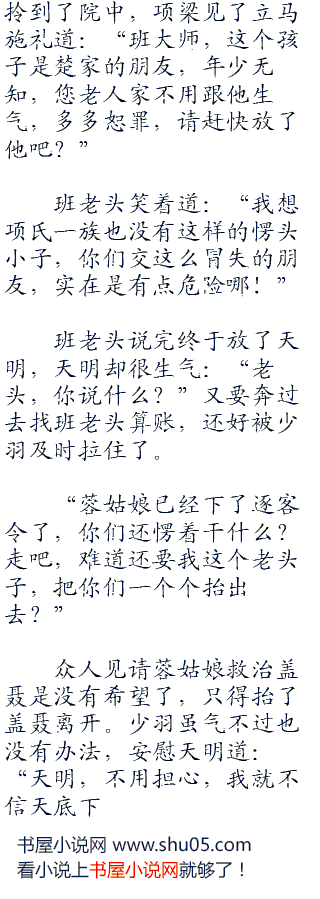 拎到了院中，项梁见了立马
施礼道：“班大师，这个孩
子是楚家的朋友，年少无
知，您老人家不用跟他生
气，多多恕罪，请赶快放了
他吧？”
班老头笑着道：“我想
项氏一族也没有这样的愣头
小子，你们交这么冒失的朋
友，实在是有点危险哪！”
班老头说完终于放了天
明，天明却很生气：“老
头，你说什么？”又要奔过
去找班老头算账，还好被少
羽及时拉住了。
“蓉姑娘已经下了逐客
令了，你们还愣着干什么？
走吧，难道还要我这个老头
子，把你们一个个抬出
去？”
众人见请蓉姑娘救治盖
聂是没有希望了，只得抬了
盖聂离开。少羽虽气不过也
没有办法，安慰天明道：
“天明，不用担心，我就不
信天底下
书屋小说网 www.shu05.com
看小说上书屋小说网就够了！